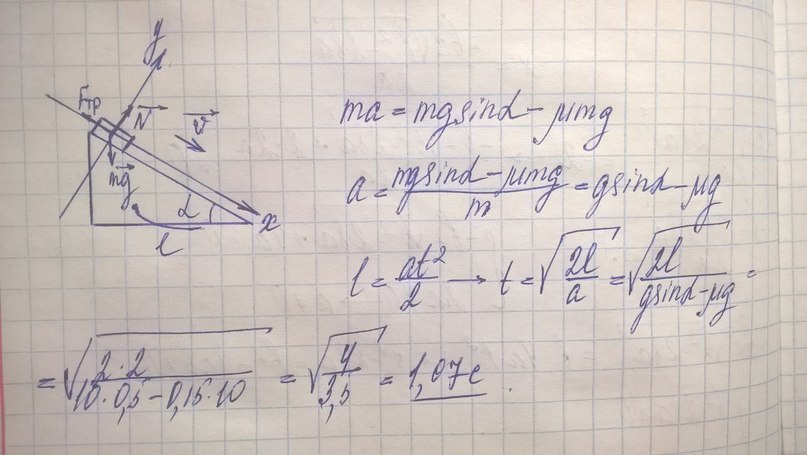 y
Fтр
N
v
mg
α
x
l
ma = mgsinα - μmg
a = mgsinα - μmg / m = gsinα - μg
l = at² / 2 → t = √2l / a = √2l / gsinα - μg =
= √2·2 / 10·0,5 - 0,15·10 = √4 / 3,5 = 1,07c